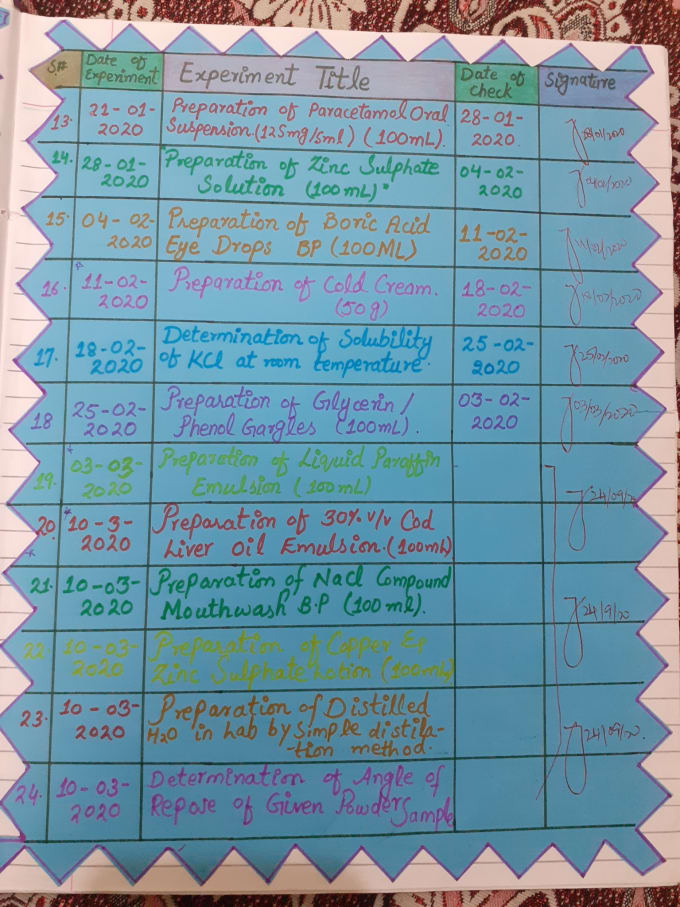 S# Date of Experiment Experiment Title Date of check Signature
13. 21-01- Preparation of Paracetamol Oral 28-01-
2020 Suspension. (125mg/5ml) (100mL). 2020. 28/01/2020
14. 28-01- Preparation of Zinc Sulphate 04-02-
2020 Solution (100mL). 2020
15. 04-02- Preparation of Boric Acid 11-02-
2020 Eye Drops BP (100ML) 2020 11/02/2020
16. 11-02- Preparation of Cold Cream. 18-02-
2020 (50g) 2020 18/02/2020
17. 18-02- Determination of Solubility 25-02-
2020 of KCl at room temperature. 2020 25/02/2020
18 25-02- Preparation of Glycerin / 03-02-
2020 Phenol Gargles (100mL). 2020 03/03/2020
19. 03-03- Preparation of Liquid Paraffin
2020 Emulsion (100mL) 24/09/20
20. 10-3- Preparation of 30% v/v Cod
2020 Liver Oil Emulsion. (100mL)
21. 10-03- Preparation of Nacl Compound
2020 Mouthwash B.P (100 ml). 24/9/20
22 10-03- Preparation of Copper &
2020 Zinc Sulphate Lotion (100mL)
23. 10-03- Preparation of Distilled
2020 H2O in Lab by Simple distila-
tion method. 24/09/20.
24. 10-03- Determination of Angle of
2020 Repose of Given Powder Sample